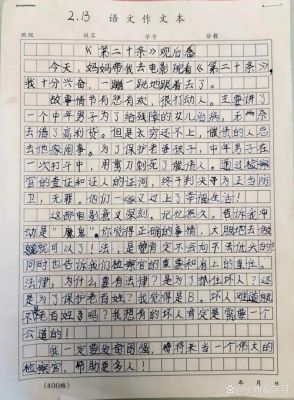 2.13 语文作文本
班级 姓名 学号 分数
《第二十条》观后感
今天，妈妈带我去电影院看《第二十条》，
我十分兴奋，一蹦一跳地跟着去了。
故事情节有悲有欢，很打动人。主要讲了
一个中年男子为了给残障的女儿治病，无奈
去借了高利贷。但是太穷还不上，催债的人总
去他家闹事。为了保护老婆孩子，中年男子在
一次打斗中，用剪刀刺死了催债人。通过检察
官的查证和证人的证词，终于判夫为正当防
卫，无罪。他们一家又过上了幸福生活！
这部电影意义深刻，记忆悠久。告诉我冲
动是“魔鬼”。你觉得正确的事情，大胆地去做
就可以了！法，是向不法
同时也告诉我们检察官的重要和肩上的责任。
法律，为什么要有法律？是为了抓住坏人？还
是为了保护老百姓？我觉得是B。坏人难道
不是百姓吗？我想有的坏人肯定是需要一个
公道的！
我一定要发奋图强，将来当一个伟大的
检察官，帮助更多人！
(400格) 年 月 日